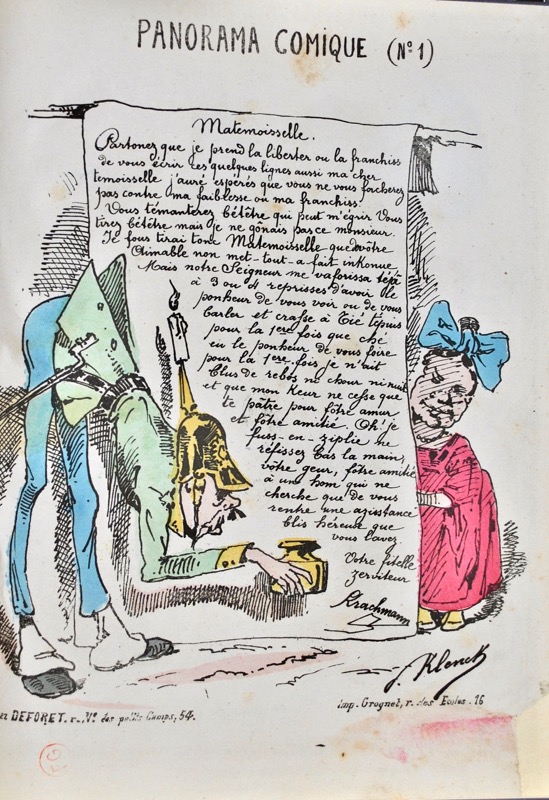 PANORAMA COMIQUE (Nº 1)
Matemoisselle.
Partonez que je prend la liberter ou la franchiss
de vous écrir ces quelques lignes aussi ma cher
temoisselle j'auré espérés que vous ne vous facherez
pas contre ma faiblesse ou ma franchiss!
Vous témanterez bétêtre qui peut m'égir Vous
tirez bétêtre mais je ne gônais pas ce monsieur.
Je fous tirai tonc Matemoisselle que vôtre
Aimable non met-tout-a fait inkonue
Mais notre Seigneur me vaforissa téjà
à 3 ou 4 reprisses d'avoir le
ponheur de vous voir ou de vous
barler et crasse à Tié tepuis
pour la 1ere fois que ché
eu le ponheur de vous foire
pour la 1ere fois je n'ait
blus de rebos ne chour ni nuit
et que mon keur ne cesse que
te pâtre pour fôtre amur
et fôtre amitié. Oh! je
fuss-en-ziplie ne
réfissez bas la main,
vôtre geur, fôtre amitié
à un hom qui ne
cherche que de vous
rentre une azisstance
blis héreuse que
vous l'avez
Votre fitelle
zerviteur
Krachmann
J. Klenck
ez DEFORET. r. Ve des petits Camps, 54.
Imp. Grognet, r. des Ecoles. 16